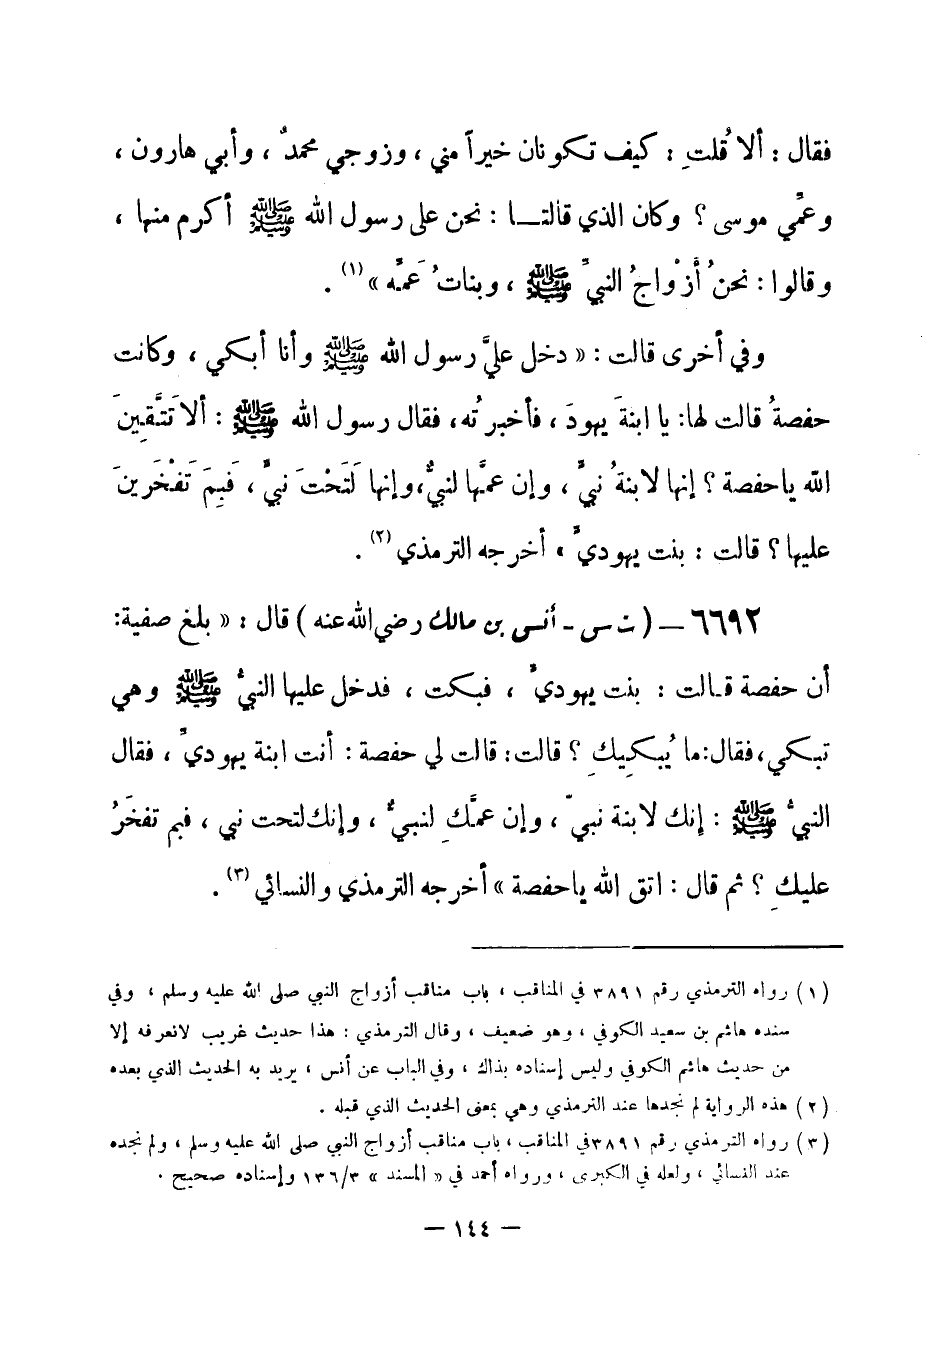 فقال : ألا قُلتِ : كيف تكونان خيراً مني ، وزوجي محمدٌ ، وأبي هارون ،
وعمِّي موسى ؟ وكان الذي قالتـــا : نحن على رسول الله ﷺ أكرم منها ،
وقالوا : نحنُ أزْواجُ النبيِّ ﷺ ، وبناتُ عَمِّه » (١) .
وفي أخرى قالت : « دخل عليَّ رسول الله ﷺ وأنا أبكي ، وكانت
حفصةُ قالت لها: يا ابنةَ يهودَ ، فأخبرتُه، فقال رسول الله ﷺ : ألا تَتَّقِينَ
الله ياحفصة ؟ إنها لابنةُ نبيٍّ ، وإن عمَّها لنبيٌّ،وإنها لَتَحْتَ نبيٍّ ، فَبِمَ تَفْخَرينَ
عليها ؟ قالت : بنت يهوديٍّ » أخرجه الترمذي (٢) .
٦٦٩٢ – ( ت س - أنس بن مالك رضي الله عنه ) قال : « بلغ صفية:
أن حفصة قـالت : بنت يهوديٍّ ، فبكت ، فدخل عليها النبيُّ ﷺ وهي
تبكي،فقال:ما يُبكيكِ ؟ قالت: قالت لي حفصة : أنت ابنة يهوديٍّ ، فقال
النبيُّ ﷺ : إنك لابنة نبيّ ، وإن عمَّكِ لنبيٌّ ، وإنك لتحت نبي ، فبم تفخَرُ
عليكِ ؟ ثم قال : اتق الله ياحفصة » أخرجه الترمذي والنسائي (٣) .
(١) رواه الترمذي رقم ٣٨٩١ في المناقب ، باب مناقب أزواج النبي صلى الله عليه وسلم ، وفي
سنده هاشم بن سعيد الكوفي ، وهو ضعيف ، وقال الترمذي : هذا حديث غريب لانعرفه إلا
من حديث هاشم الكوفي وليس إسناده بذاك ، وفي الباب عن أنس ، يريد به الحديث الذي بعده
(٢) هذه الرواية لم نجدها عند الترمذي وهي بمعنى الحديث الذي قبله .
(٣) رواه الترمذي رقم ٣٨٩١ في المناقب ، باب مناقب أزواج النبي صلى الله عليه وسلم ، ولم نجده
عند النسائي ، ولعله في الكبرى ، ورواه أحمد في « المسند » ١٣٦/٣ وإسناده صحيح .
– ١٤٤ –